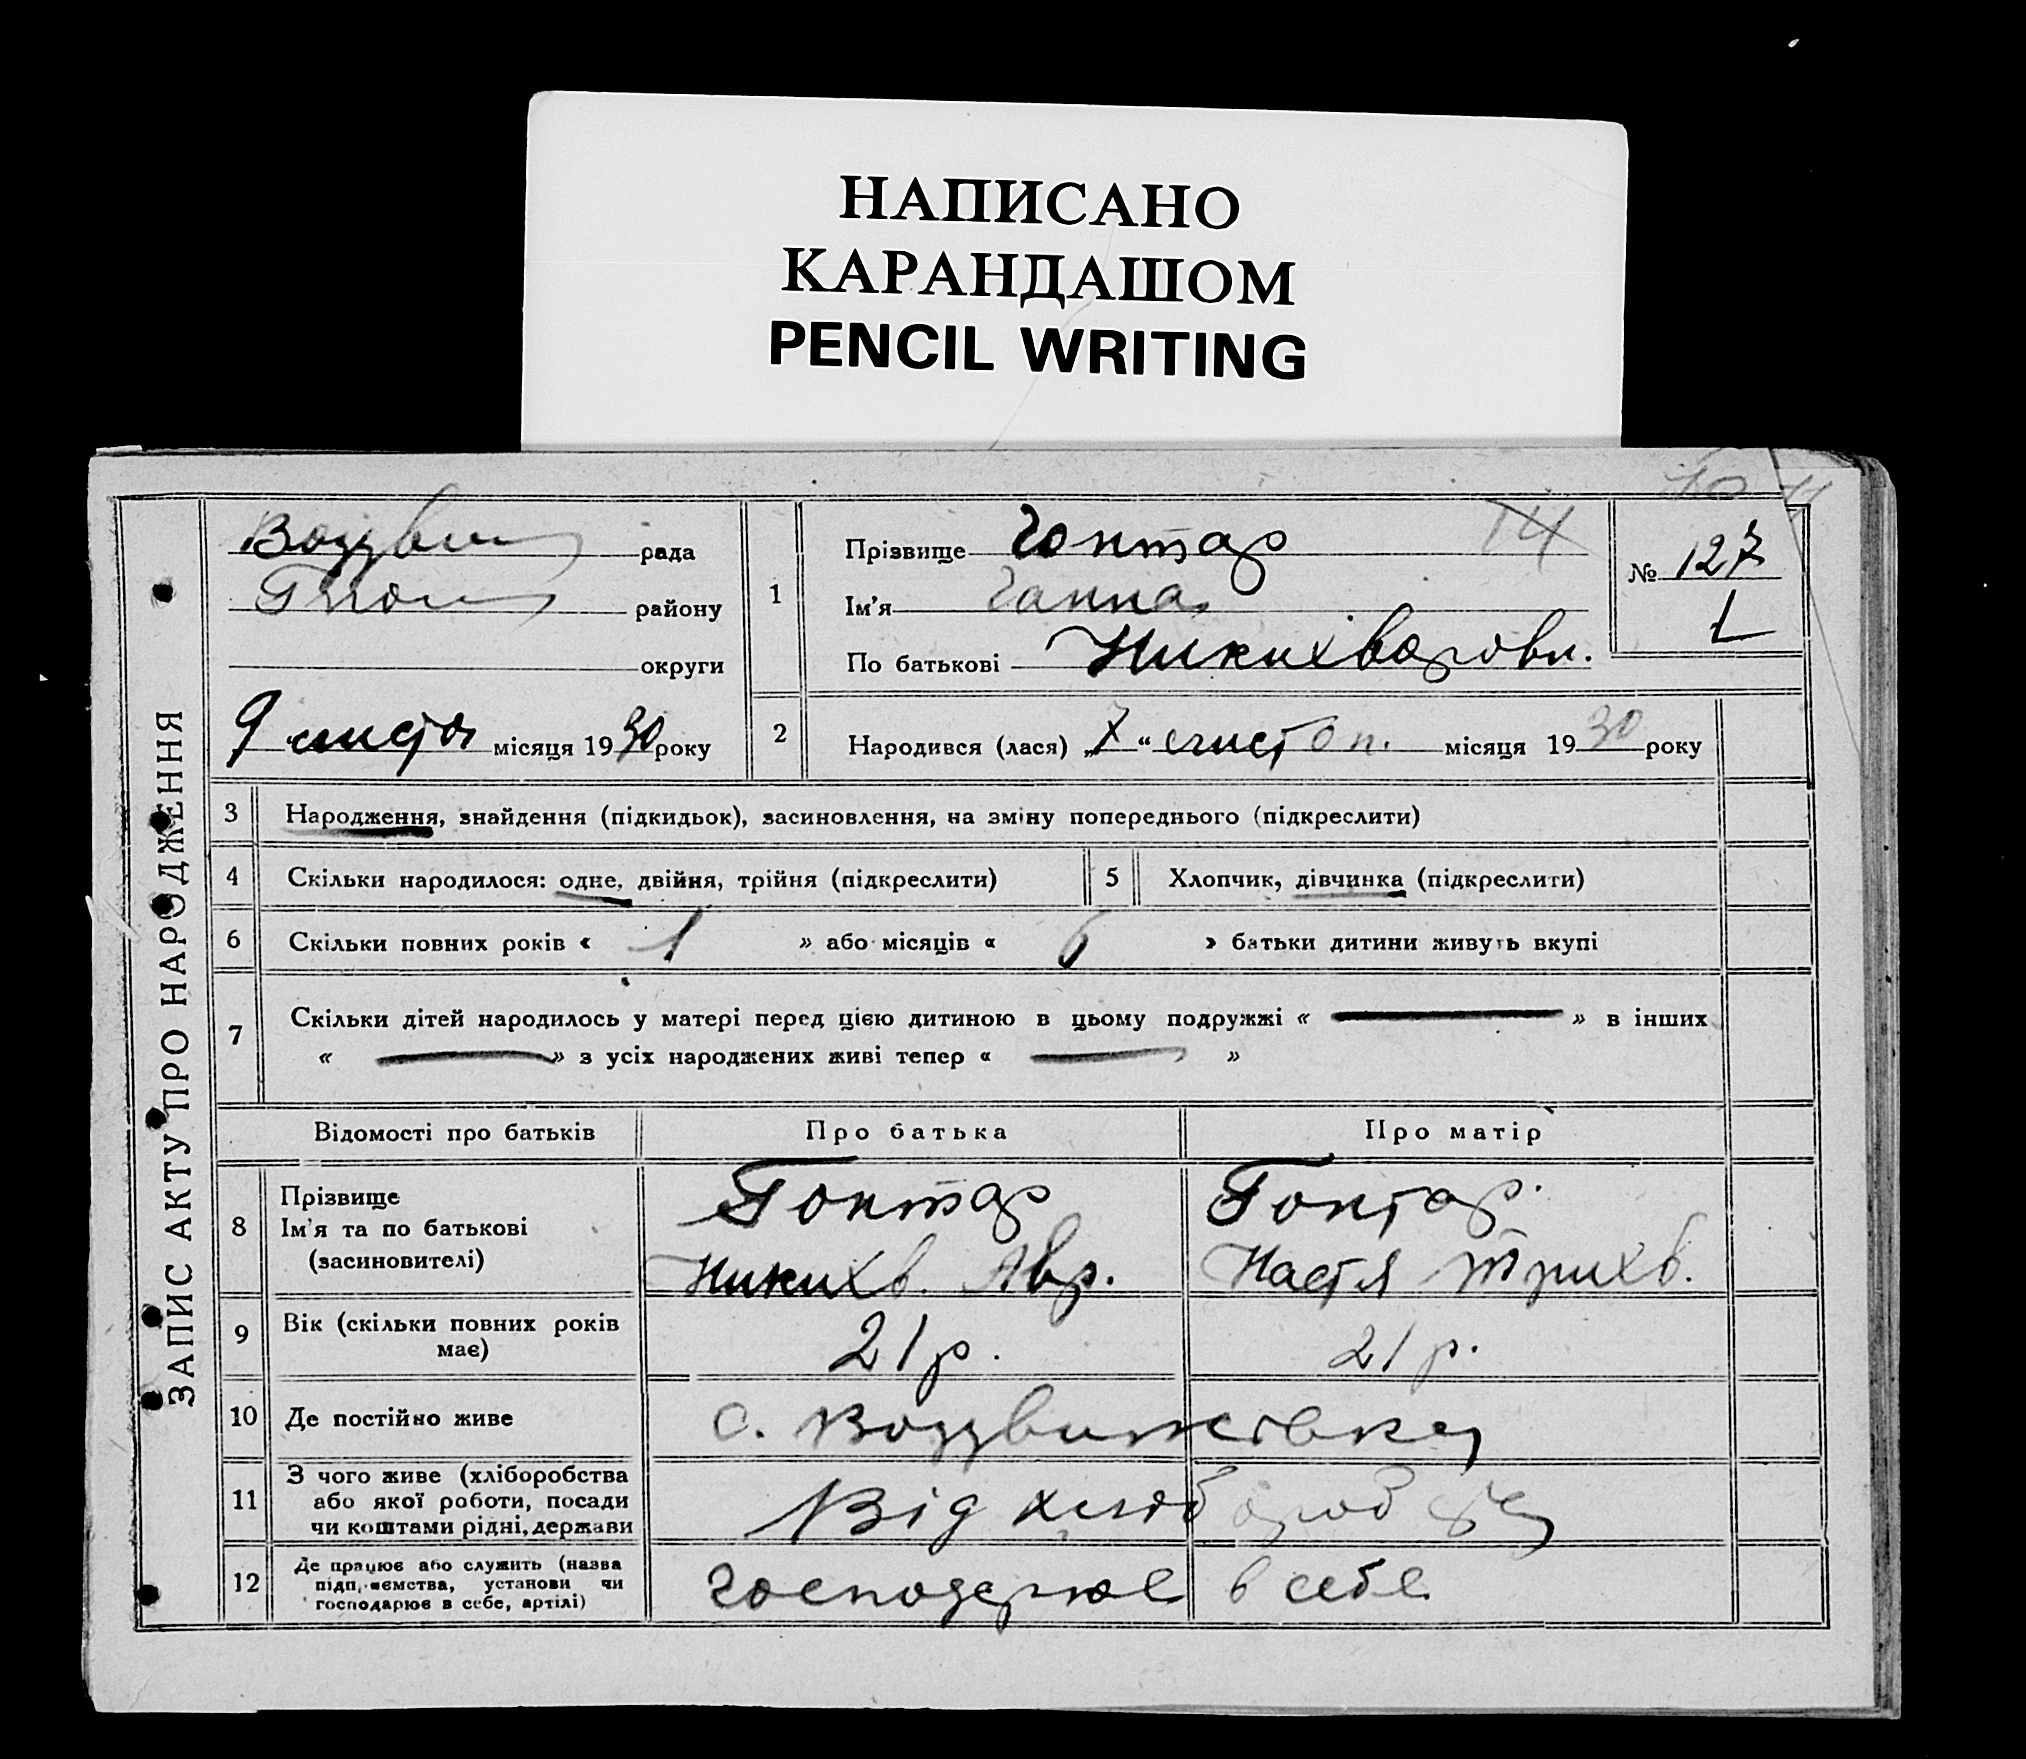 НАПИСАНО
КАРАНДАШОМ
PENCIL WRITING
ЗАПИС АКТУ ПРО НАРОДЖЕННЯ
Воздвиж рада
району
округи
9 листоп місяця 1930 року
1
Прізвище Гонтар 14
Ім'я Ганна
По батькові Никихваровн.
№ 127
2 Народився (лася) „7“ листоп. місяця 1930 року
3 Народження, знайдення (підкидьок), засиновлення, на зміну попереднього (підкреслити)
4 Скільки народилося: одне, двійня, трійня (підкреслити) 5 Хлопчик, дівчинка (підкреслити)
6 Скільки повних років « 1 » або місяців « 6 » батьки дитини живуть вкупі
7 Скільки дітей народилось у матері перед цією дитиною в цьому подружжі « — » в інших
« — » з усіх народжених живі тепер « — »
Відомості про батьків Про батька Про матір
8 Прізвище Гонтар Гонтар.
Ім'я та по батькові
(засиновителі) Никихв. Авр. Настя Трихв.
9 Вік (скільки повних років
має) 21 р. 21 р.
10 Де постійно живе с. Воздвижівка
11 З чого живе (хліборобства
або якої роботи, посади
чи коштами рідні, держави Від хліборобства
12 Де працює або служить (назва
підприємства, установи чи
господарює в себе, артілі) Господарює в себе